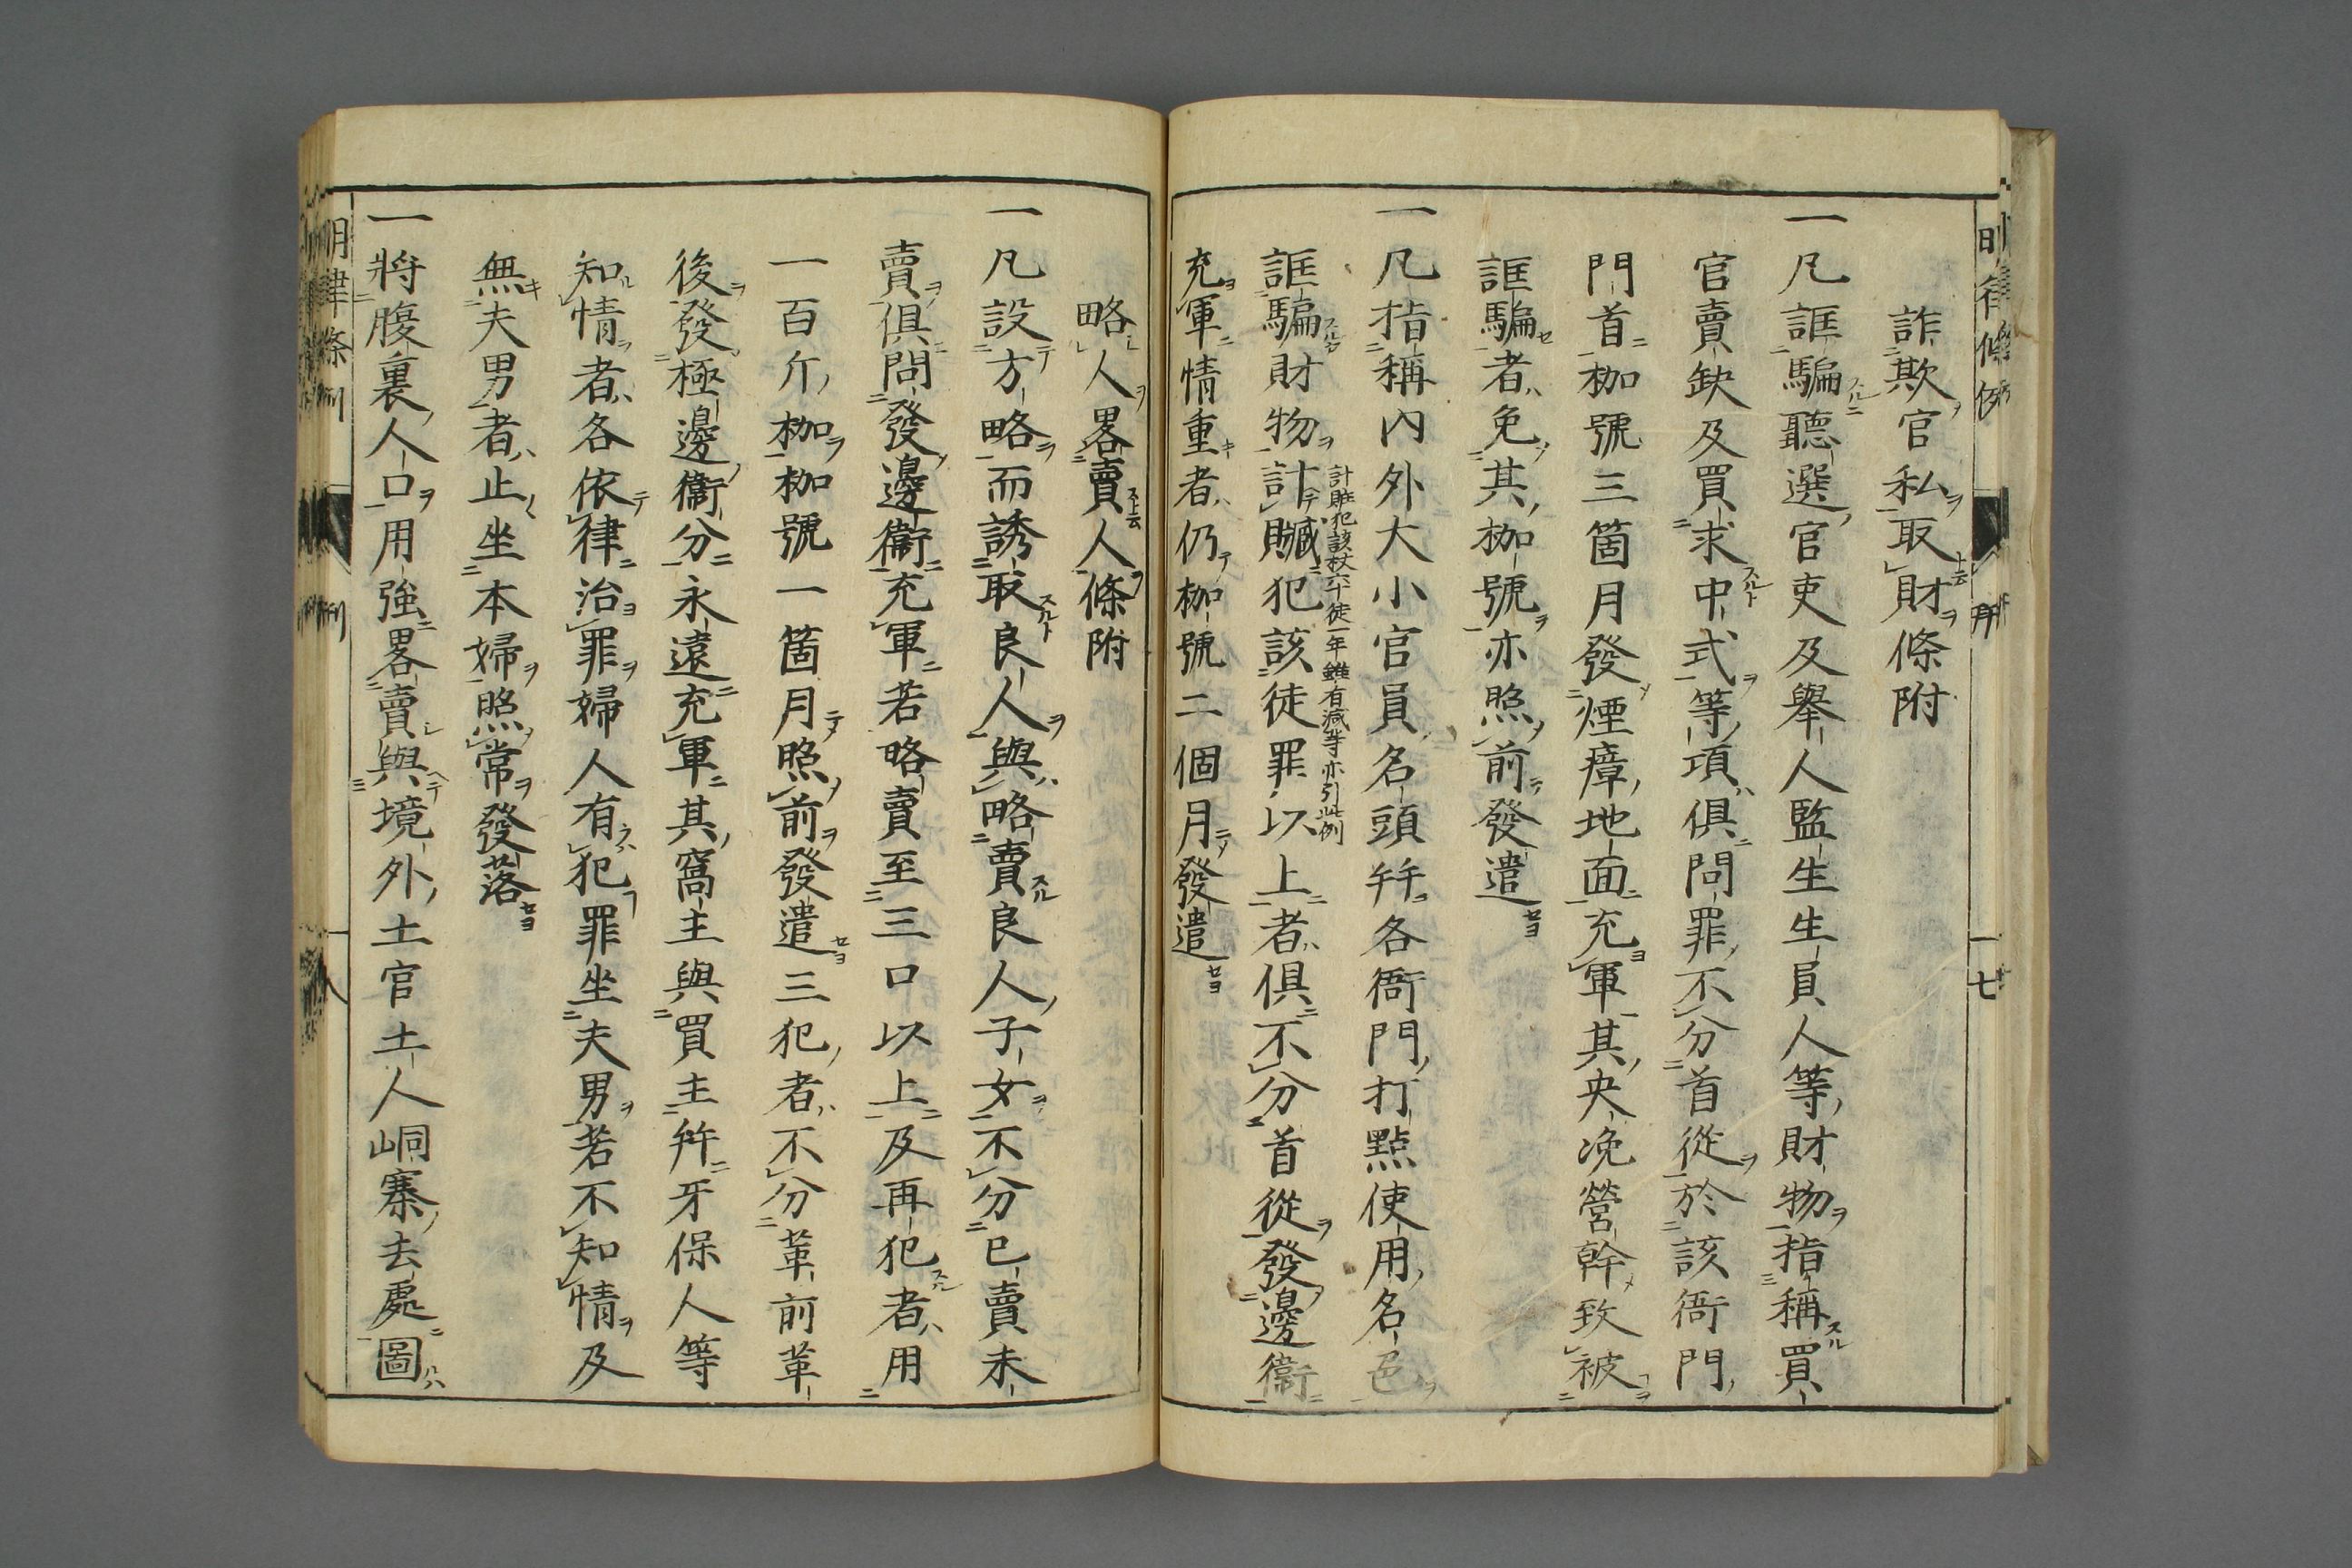 詐欺官私取財條附
一凡誆騙聽選官吏及舉人監生生員人等財物指稱買
官賣缺及買求中式等項俱問罪不分首從於該衙門
門首枷號三箇月發煙瘴地面充軍其央浼營幹致被
誆騙者免其枷號亦照前發遣
一凡指稱內外大小官員名頭幷各衙門打點使用名色
誆騙財物計贓犯該徒罪以上者俱不分首從發邊衞
計贓犯該杖六十徒一年雖有減等亦引此例
充軍情重者仍枷號二個月發遣
略人畧賣人條附
一凡設方略而誘取良人與略賣良人子女不分已賣未
賣俱問發邊衞充軍若略賣至三口以上及再犯者用
一百斤枷枷號一箇月照前發遣三犯者不分革前革
後發極邊衞分永遠充軍其窩主與買主幷牙保人等
知情者各依律治罪婦人有犯罪坐夫男若不知情及
無夫男者止坐本婦照常發落
一將腹裏人口用強畧賣與境外土官土人峒寨去處圖